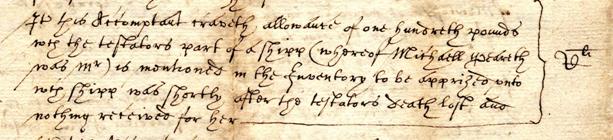 It this Accomptant craveth allowance of one hundreth pounds
wch the testators part of a shipp (whereof Michaell Peareth
was mr) is mentioned in the Inventory to be apprized unto
wch shipp was shortly after the testators death lost and
nothing received for her